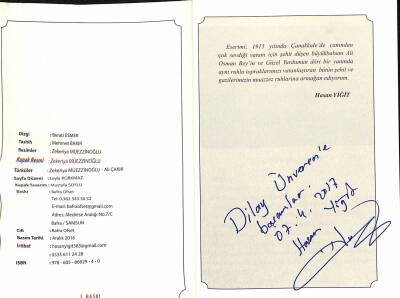 Dizgi : Berati ESMER
Tashih : Mehmet BAKIR
Resimler : Zekeriya MÜEZZİNOĞLU
Kapak Resmi : Zekeriya MÜEZZİNOĞLU
Türküler : Zekeriya MÜEZZİNOĞLU - Ali ÇAKIR
Sayfa Düzeni : Leyla KORKMAZ
Kapak Tasarım : Mustafa SOYLU
Baskı : Bafra Ofset
Tel:0.362 543 50 52
E-mail: bafraofset@gmail.com
Adres: Medrese Aralığı No:7/C
Bafra / SAMSUN
Cilt : Bafra Ofset
Basım Tarihi : Aralık 2016
İrtibat : hasanyigit383@gmail.com
: 0535 611 24 28
ISBN : 978 - 605 - 66629 - 4 - 0
2. BASKI
Eserimi: 1915 yılında Çanakkale'de canından
çok sevdiği vatanı için şehit düşen büyükbabam Ali
Osman Bey'in ve Güzel Yurdumun dört bir yanında
aynı ruhla topraklarımızı vatanlaştıran bütün şehit ve
gazilerimizin muazzez ruhlarına armağan ediyorum.
Hasan YİĞİT
Dilay Ünveren'e
başarılar.
07.4.2017
Hasan Yiğit